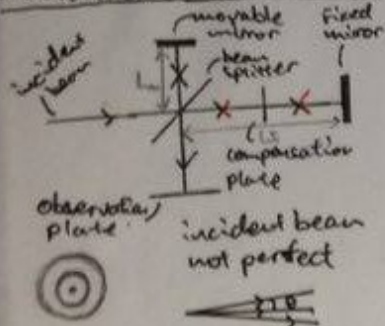 movable
mirror
fixed
mirror
incident
beam
beam
splitter
Lm
Ls
compensation
plate
observation
plate
incident beam
not perfect
θ